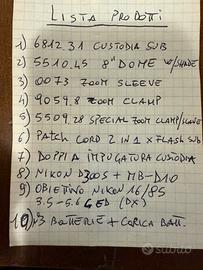 LISTA PRODOTTI
1) 6812.31 CUSTODIA SUB
2) 5510.45 8" DOME W/SHADE
3) 0073 ZOOM SLEEVE
4) 9059.8 ZOOM CLAMP
5) 5509.28 SPECIAL ZOOM CLAMP/
6) PATCH CORD 2 IN 1 X FLASH SUB
7) DOPPIA IMPUGATURA CUSTODIA
8) NIKON D300S + MB-D10
9) OBIETTIVO NIKON 16/85
3.5-5.6 GED (DX)
10) N°3 BATTERIE + CARICA BATT.
subito